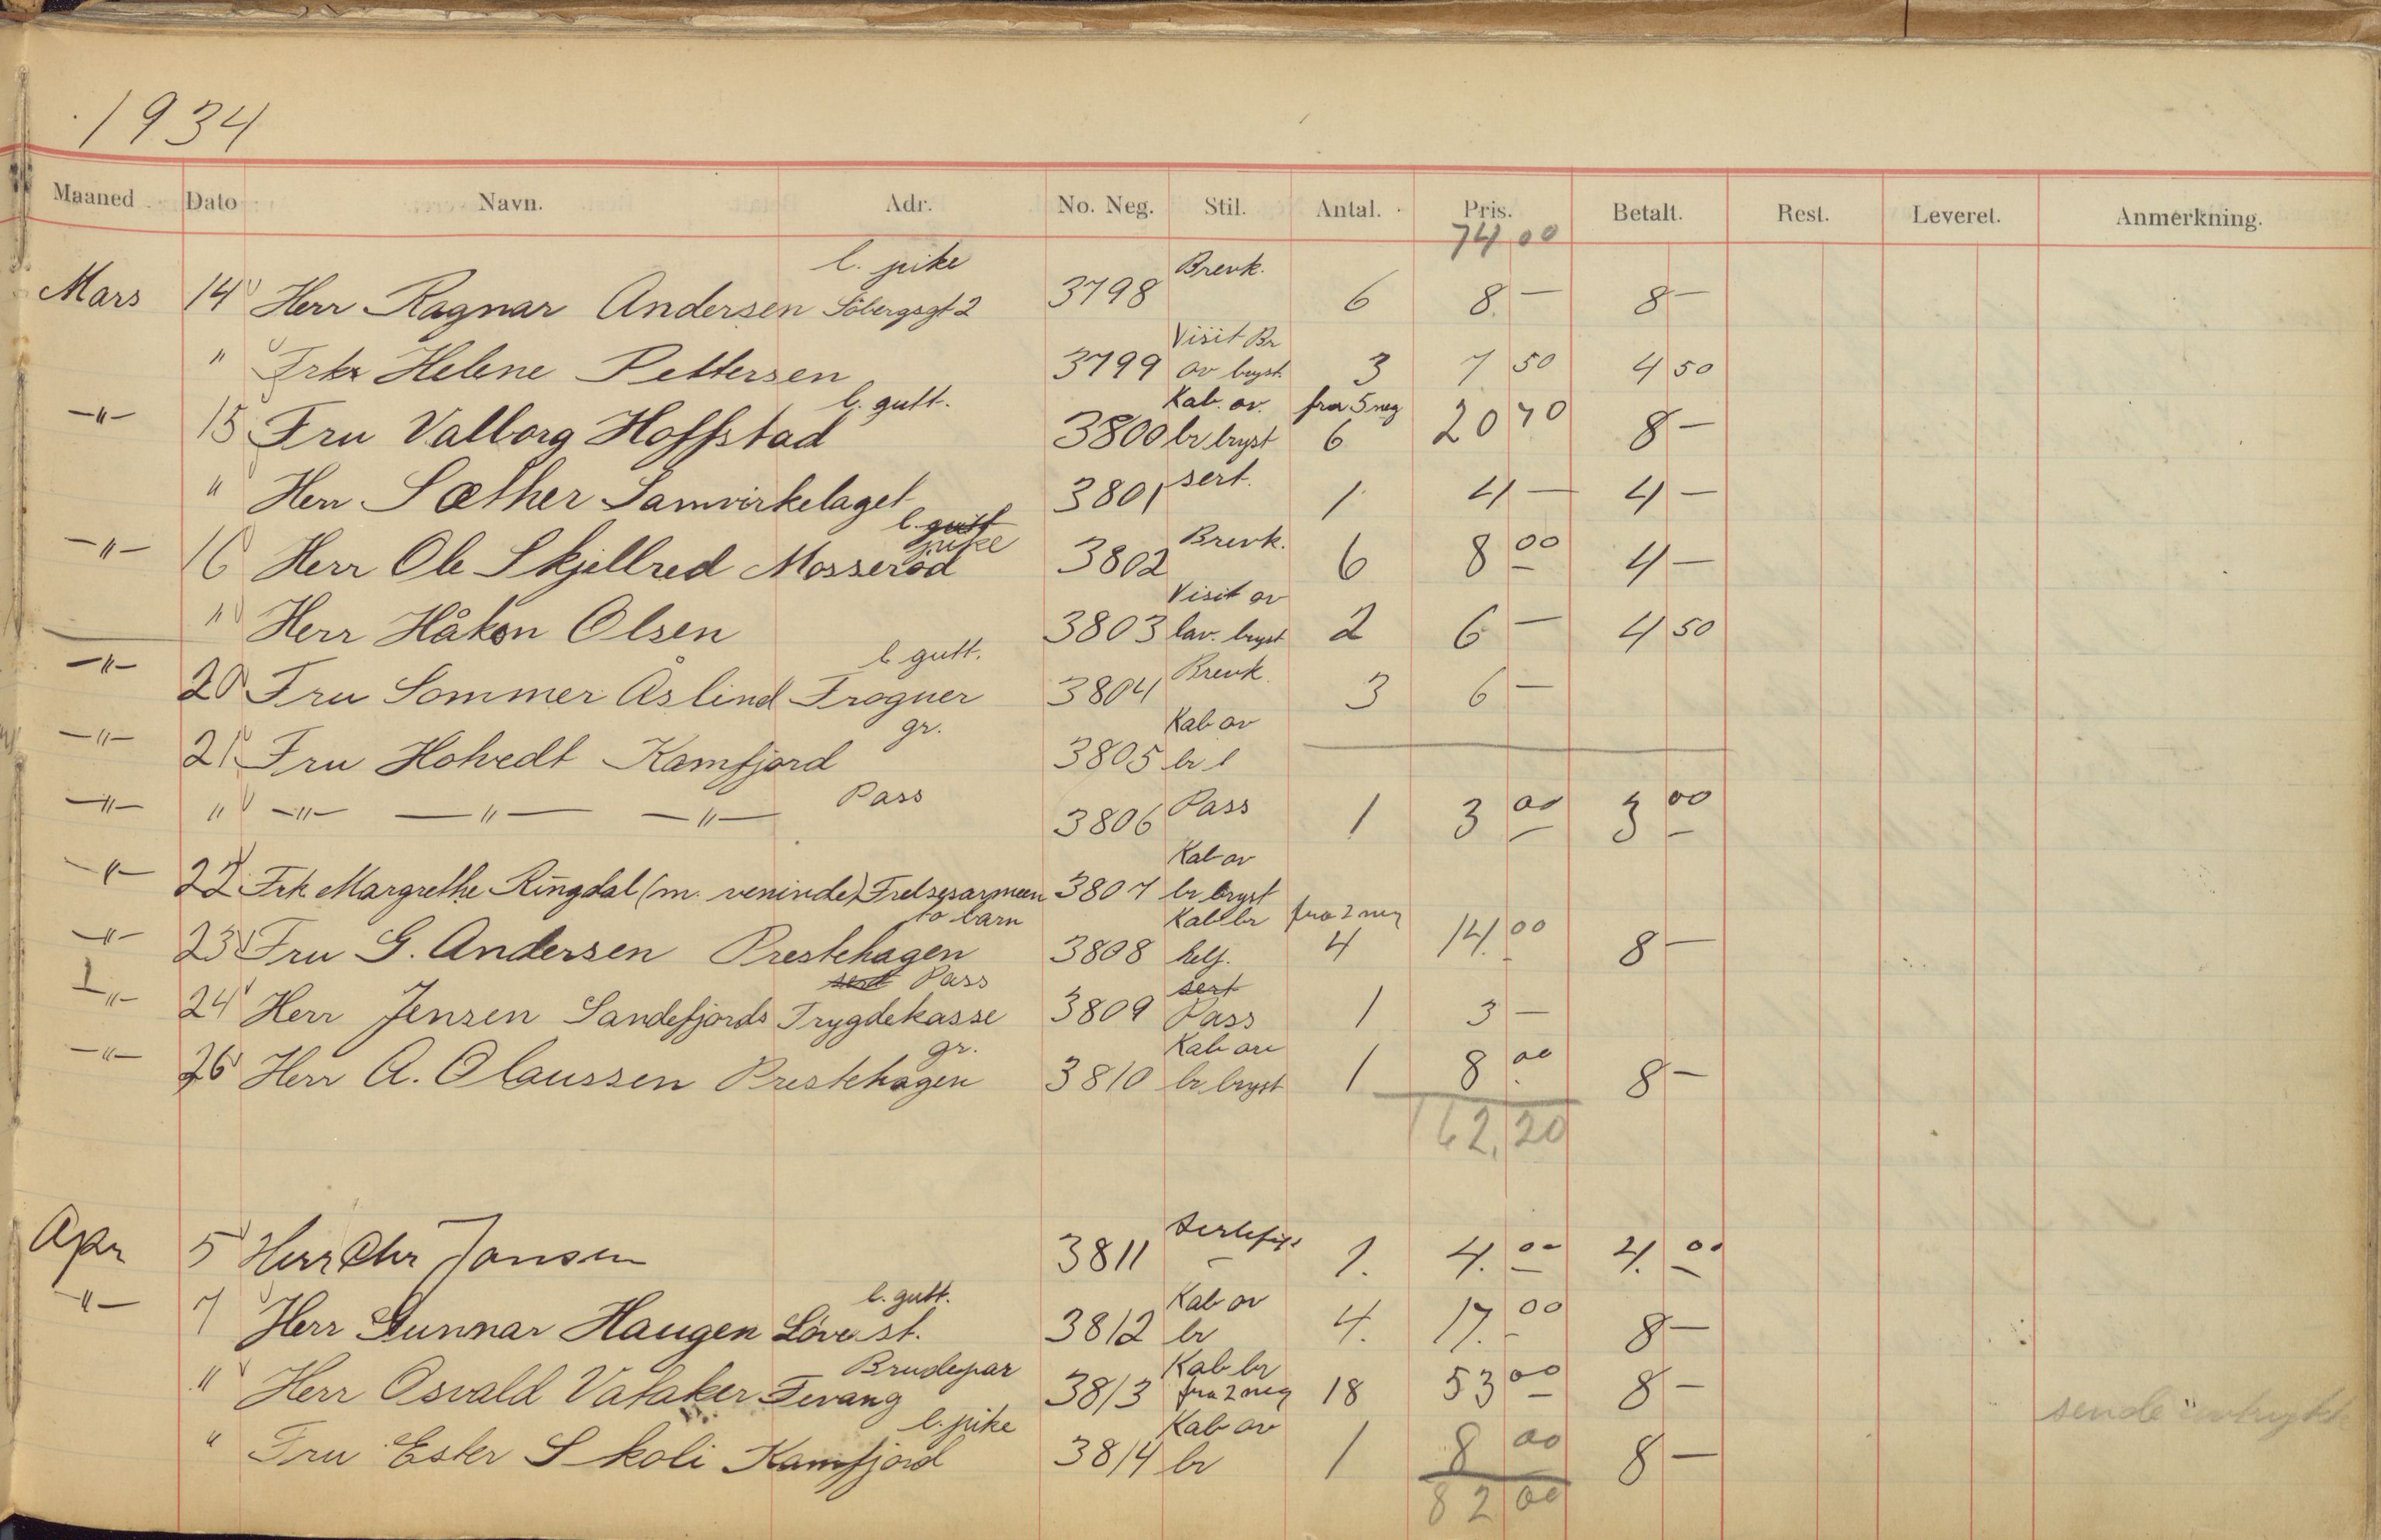 1934
Maaned Dato Navn. Adr. No. Neg. Stil. Antal. Pris. Betalt. Rest. Leveret. Anmerkning.
74 00
l. pike Brevk.
Mars 14 Herr Ragnar Andersen Söbergsgt 2 3798 6 8 — 8 —
Visit Br
" Frk Helene Pettersen 3799 av bryst 3 7 50 4 50
l. gutt. Kab. av. fra 5 neg
—"— 15 Fru Valborg Hoffstad 3800 br bryst 6 20 70 8 —
" Herr Sæther Samvirkelaget 3801 sert. 1 4 — 4 —
l. gutt
pike Brevk.
—"— 16 Herr Ole Skjellred Mosserød 3802 6 8 00 4 —
Visit av
" Herr Håkon Olsen 3803 lav. bryst 2 6 — 4 50
l gutt. Brevk
—"— 20 Fru Sommer Åslind Frogner 3804 3 6 —
gr. Kab av
—"— 21 Fru Hohvedt Kamfjord 3805 br l
—"— " —"— —"— —"— Pass 3806 Pass 1 3 00 3 00
Kab av
—"— 22 Frk Margrethe Ringdal (m. veninde) Frelsesarmeen 3807 br bryst
to barn Kab br fra 2 neg
—"— 23 Fru G. Andersen Prestehagen 3808 helf. 4 14. 00 8 —
sert Pass sert
—"— 24 Herr Jensen Sandefjords Trygdekasse 3809 Pass 1 3 —
gr. Kab av
—"— 26 Herr A. Olaussen Prestehagen 3810 br bryst 1 8 00 8 —
162,20
Apr 5 Herr Chr Jansen 3811 1. 4. 00 4. 00
l. gutt. Kab av
—"— 7 Herr Gunnar Haugen Löve st. 3812 br 4. 17. 00 8 —
Brudepar Kab br
" Herr Osvald Vataker Fevang 3813 fra 2 neg 18 53 00 8 —
sende
l. pike Kab av
" Fru Ester Skoli Kamfjord 3814 br 1 8 00 8 —
82 00